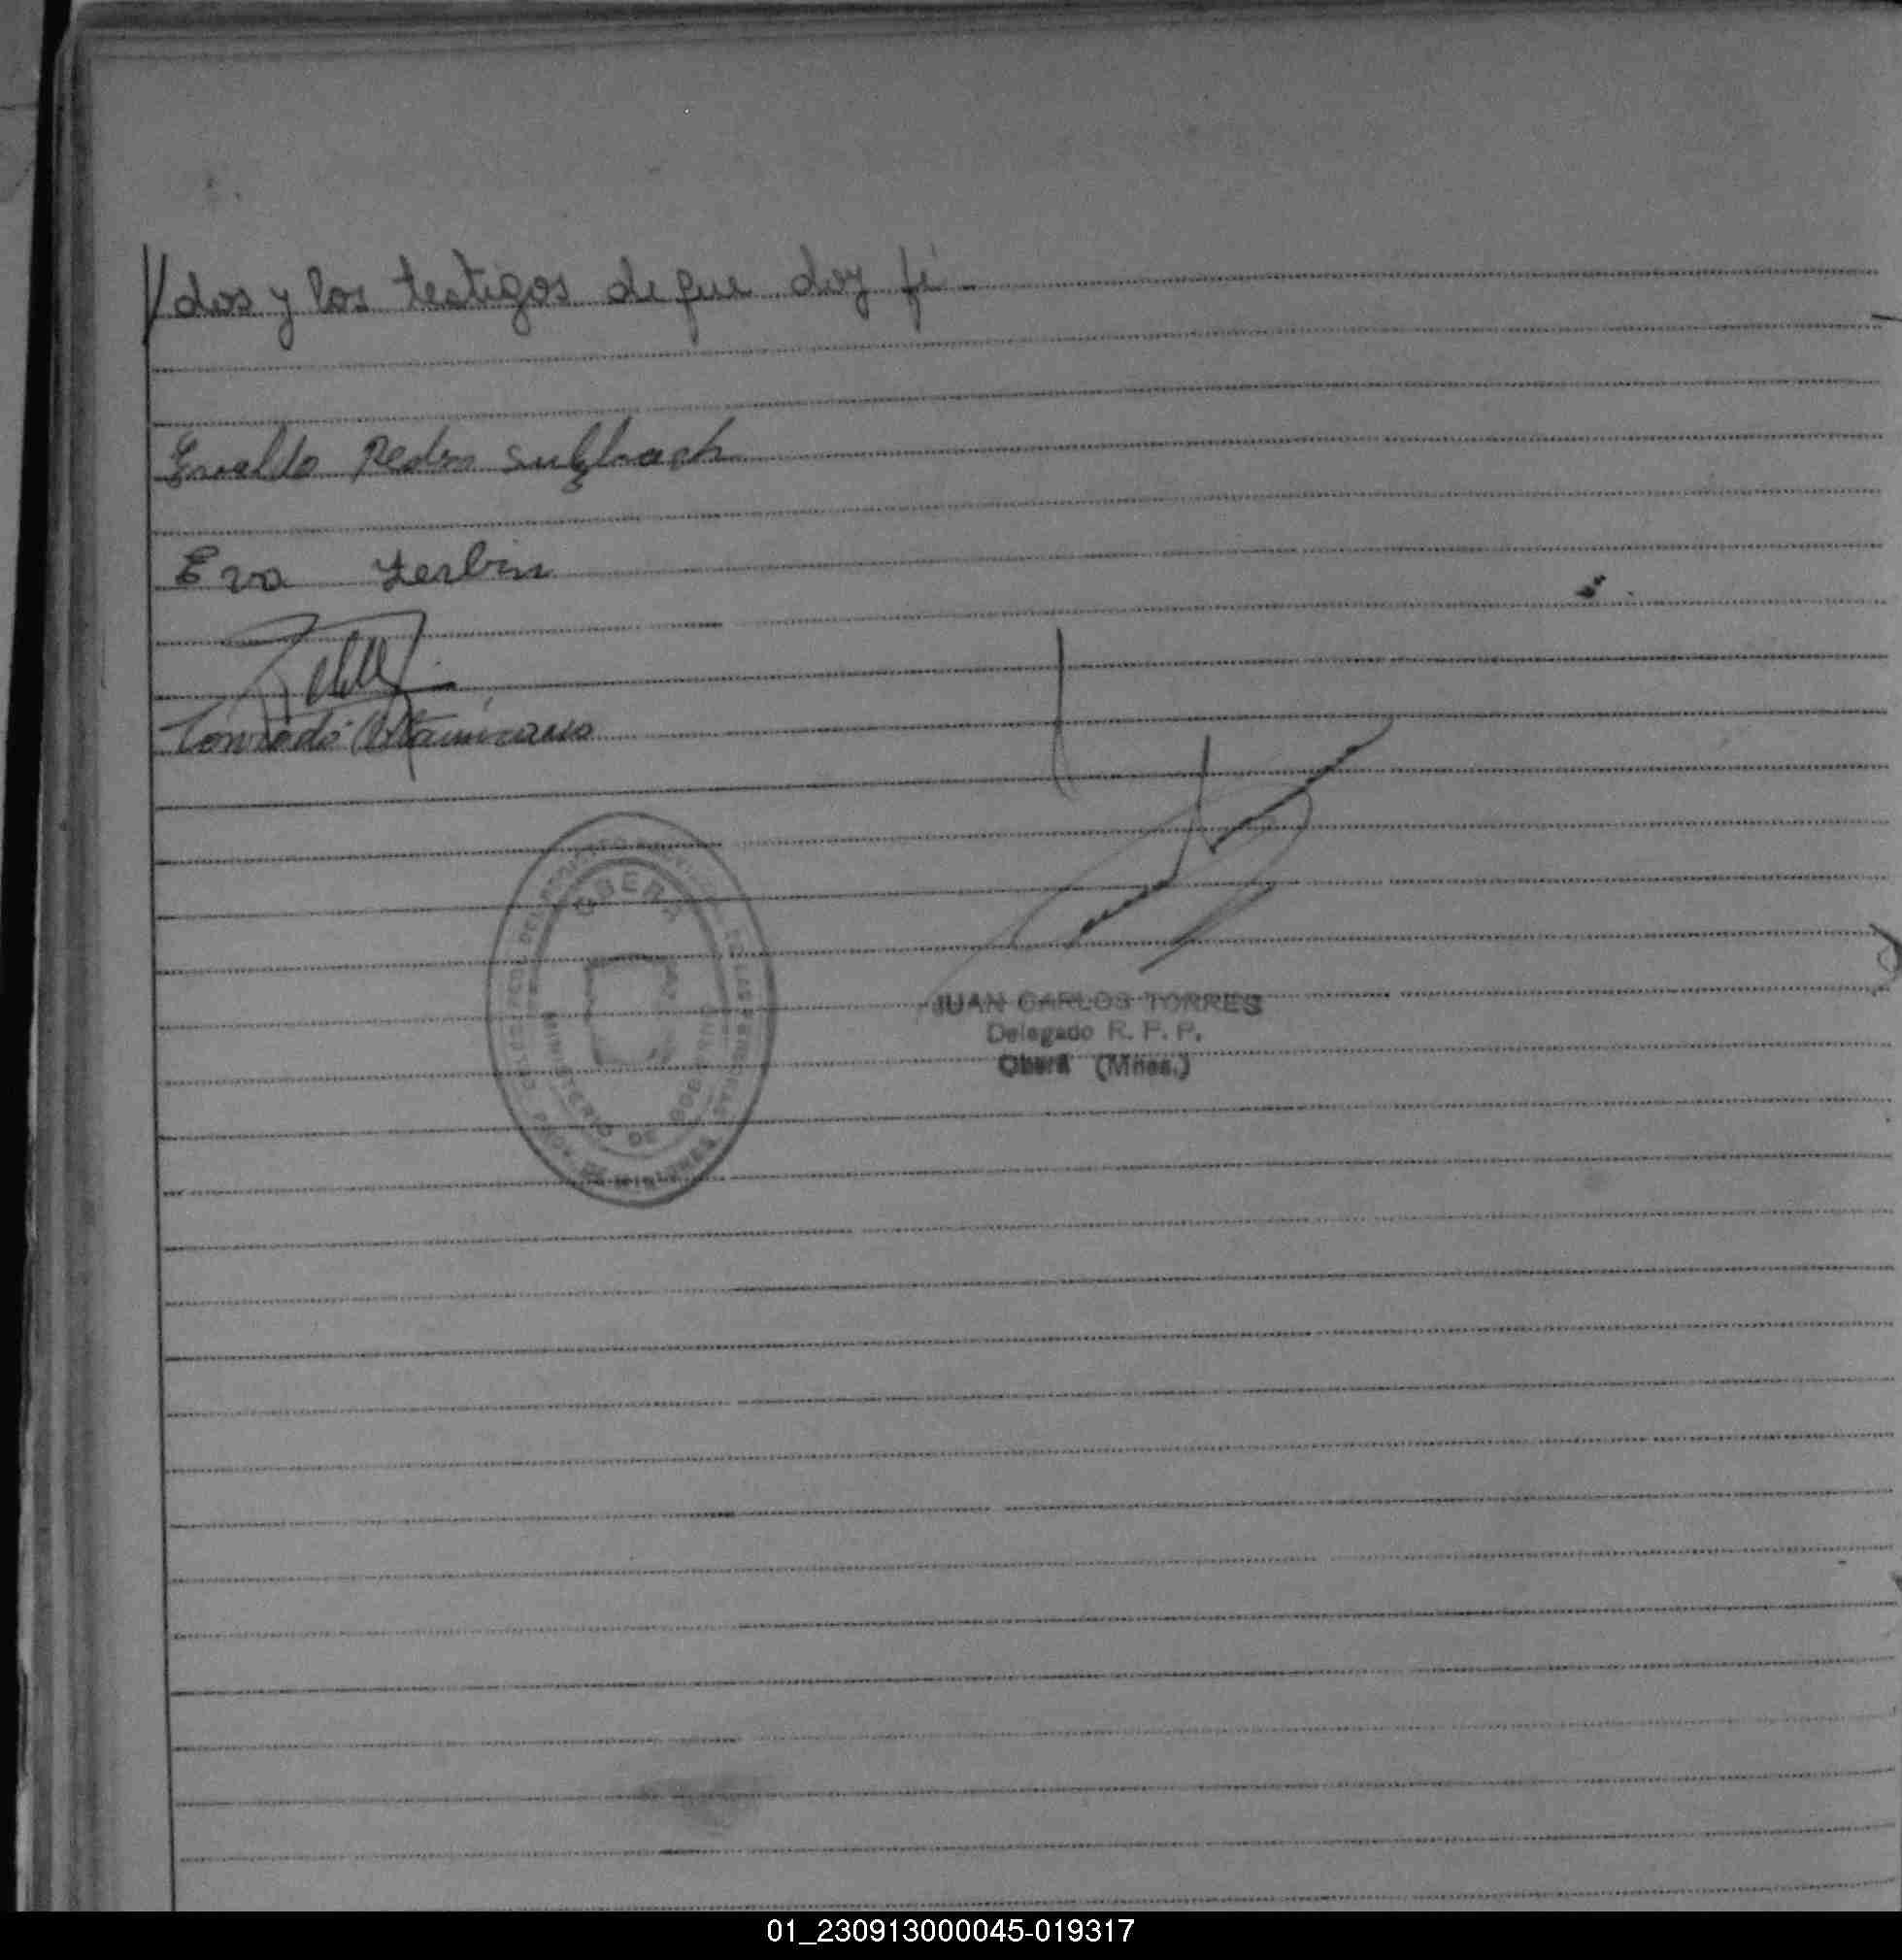 /dos y los testigos de que doy fé.-
Evaldo Pedro Sulzbach
Eva Zerbin
Conrado Altamirano
OBERÁ
MINISTERIO DE GOBIERNO
PROV. DE MISIONES
JUAN CARLOS TORRES
Delegado R. P. P.
Oberá (Mnes.)
01_230913000045-019317